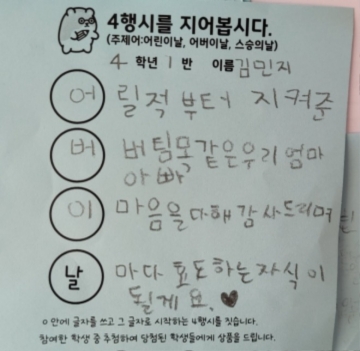 4행시를 지어봅시다.
(주제어:어린이날, 어버이날, 스승의날)
4 학년 1 반 이름 김민지
어 릴적 부터 지켜준
버 버팀목같은우리 엄마
아빠
이 마음을 다해 감사드리며
날 마다 효도하는자식이
될게요.♥
○ 안에 글자를 쓰고 그 글자로 시작하는 4행시를 짓습니다.
참여한 학생 중 추첨하여 당첨된 학생들에게 상품을 드립니다.